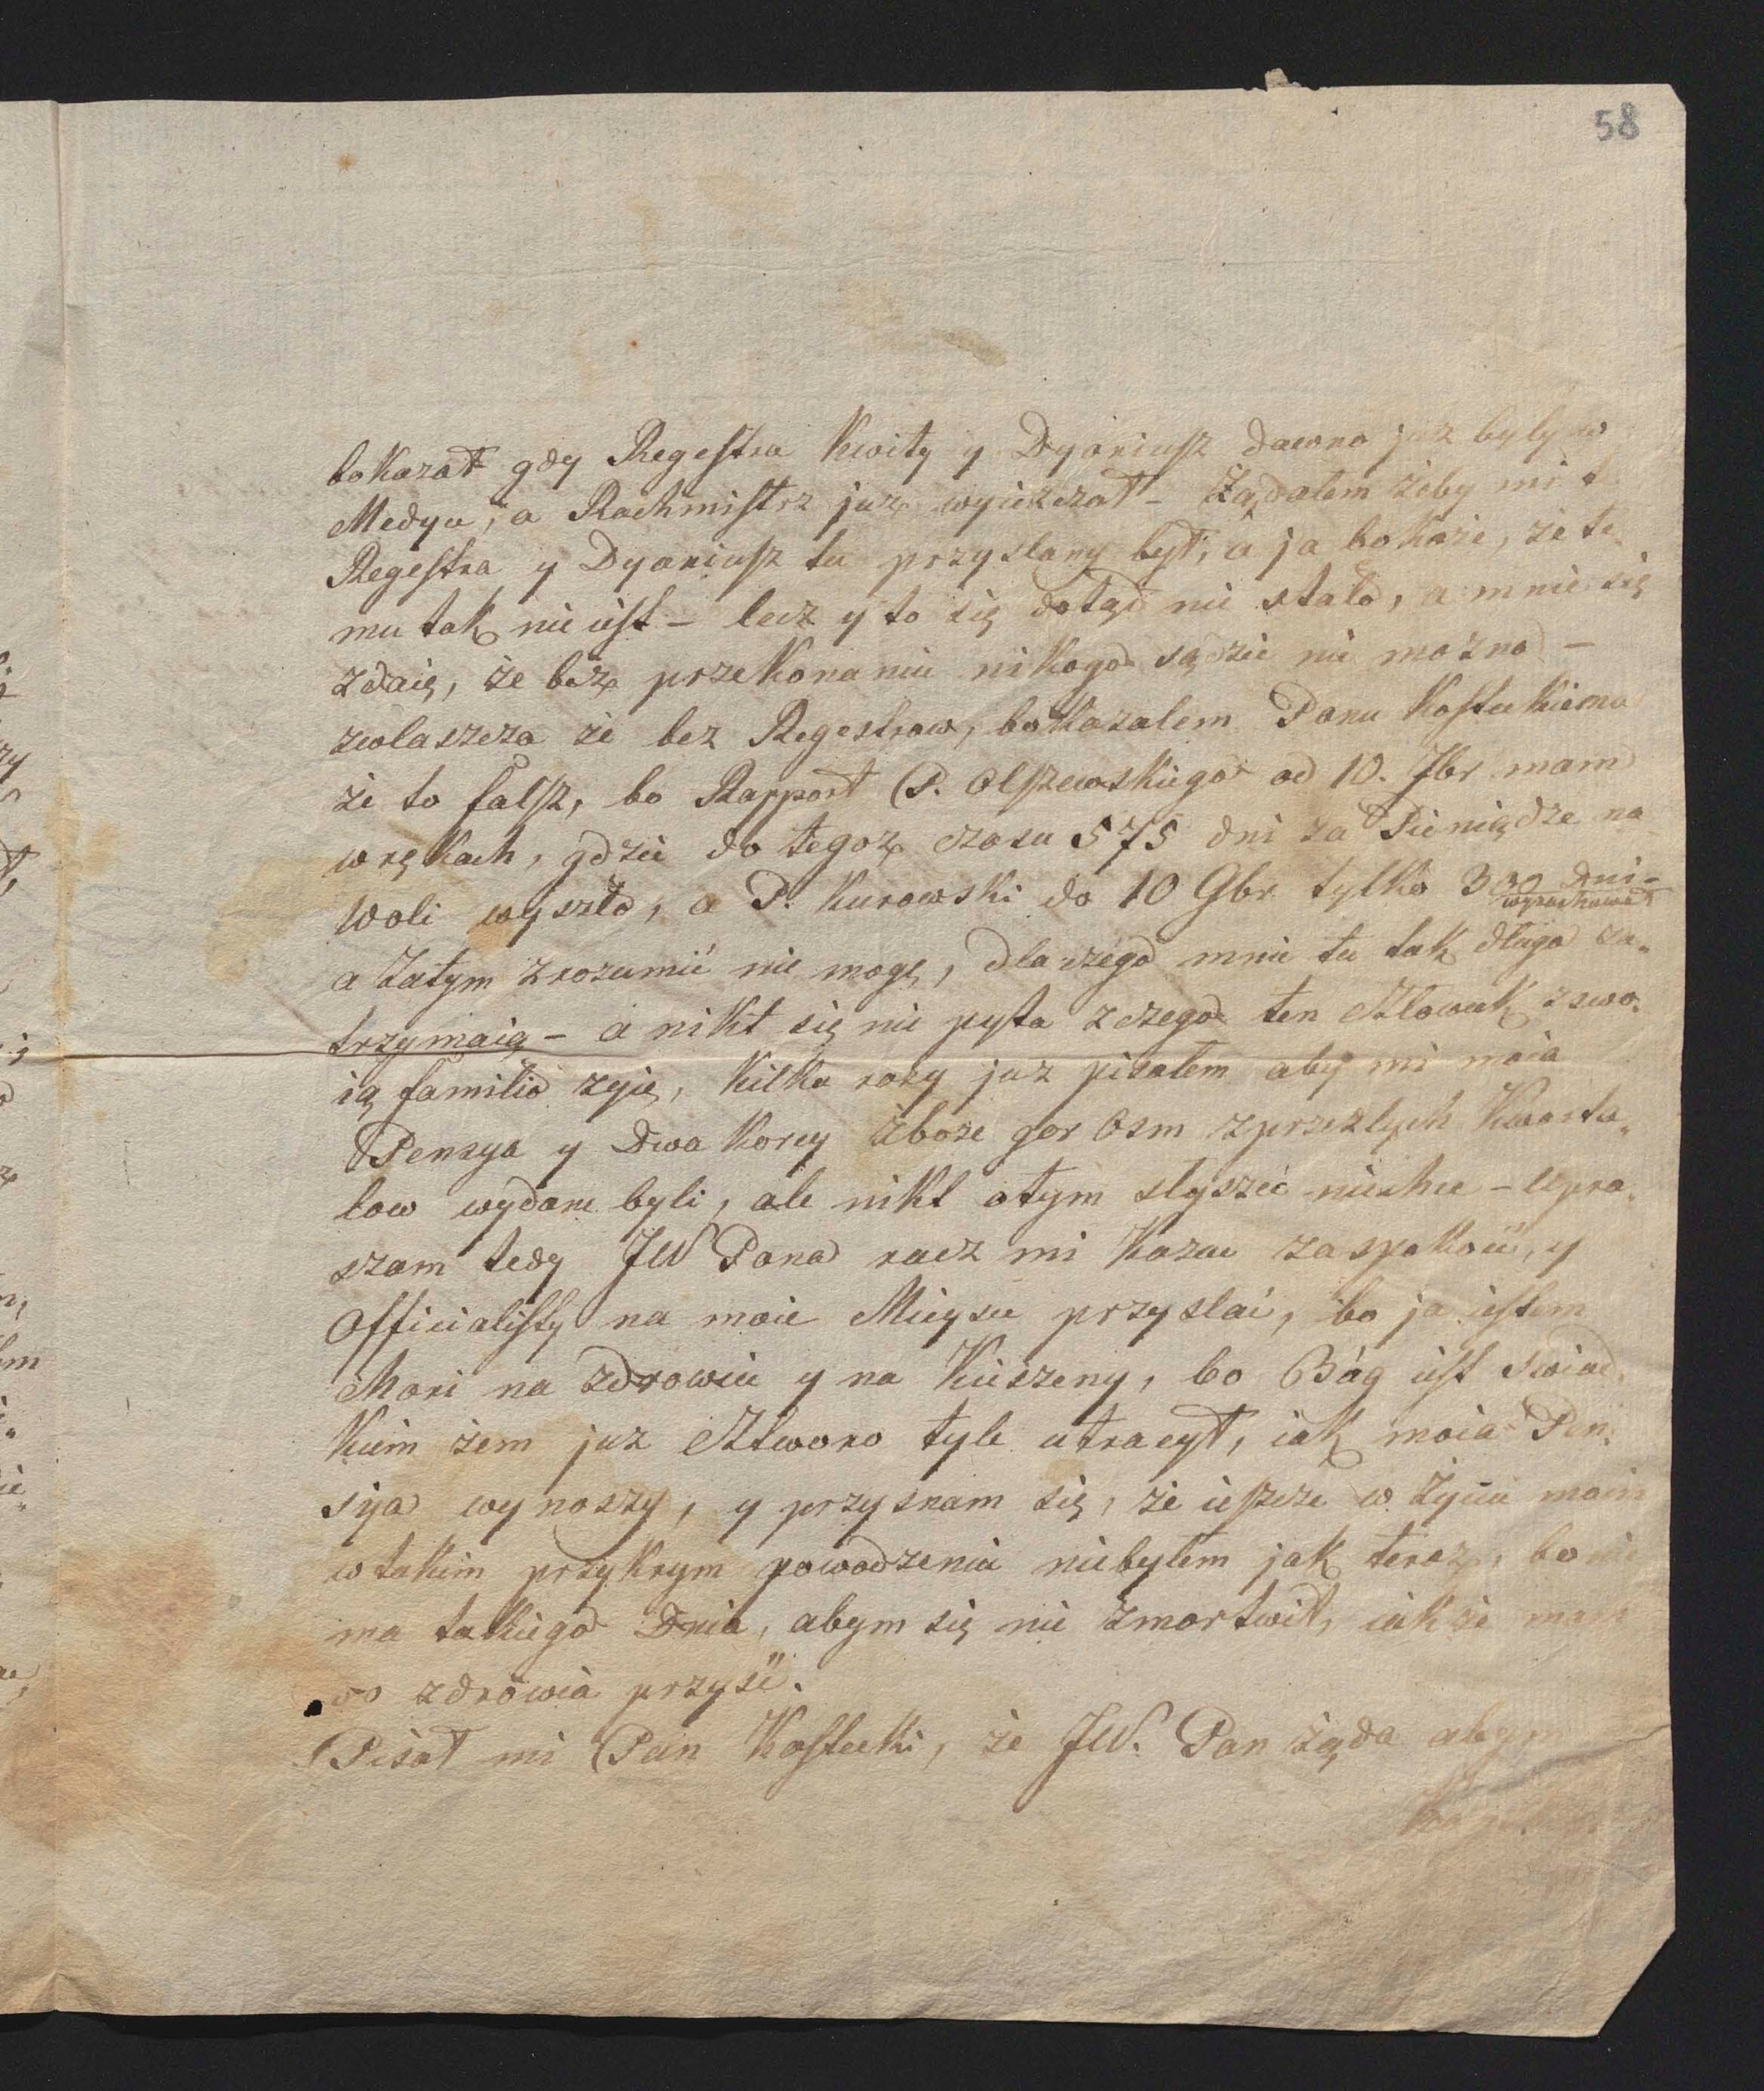 58
bokazał gdy Regestra Kwity y Dyariusz dawno juz byly w
Medyu, a Rachmistrz juz wyiezczał – Ządalem zeby mi te
Regestra y Dyariusz tu przyslany był, a ja bokaze, ze te
mu tak nie iest – lecz y to się dotąd nie stało, a mnie się
zdaię, ze bez przekonaniu nikogo sądzie nie mozno –
zwlaszcza ze bez Regestrow, bokazalem Panu Kosteckiemu
ze to falsz, bo Rapport P. Olszewskiego od 10. 7br mam
w rękach, gdzie do tegoz czasu 575 dni za Pieniądze na
Woli wyszło, a P. Kurowski do 10 9br tylko 300 dni –
wyrachował
a Zatym zrozumić nie mogę, dlaczego mnie tu tak dlugo za„
trzymaią – a nikt się nie pyta z czego ten Człowiek z swo„
ią familio zyie, kilka razy juz pisalem aby mi moia
Pensya y Dwa Korcy zboze gor Osm z przeszlych Kwarta„
low wydane byli, ale nikt otym slyszeć niechce – Upra„
szam tedy JW Pana racz mi Kazac zaspokoić, y
Officialisty na moie Mieysce przyslać, bo ja iestem
Chori na zdrowiu y na Kieszeny, bo Bóg iest Swiad„
kiem zem juz Cztwono tyle utracył, iak moia Pen„
sya wynoszy, y przysnam się, ze ieszcze w Zyciu moim
w takim przykrym powodzeniu niebylem jak teraz, bo nie
ma takiego Dnia, abym się nie zmortwił, iakze mam
do zdrowia przysć.
Pisał mi Pan Kostecki, ze JW. Pan ząda abym